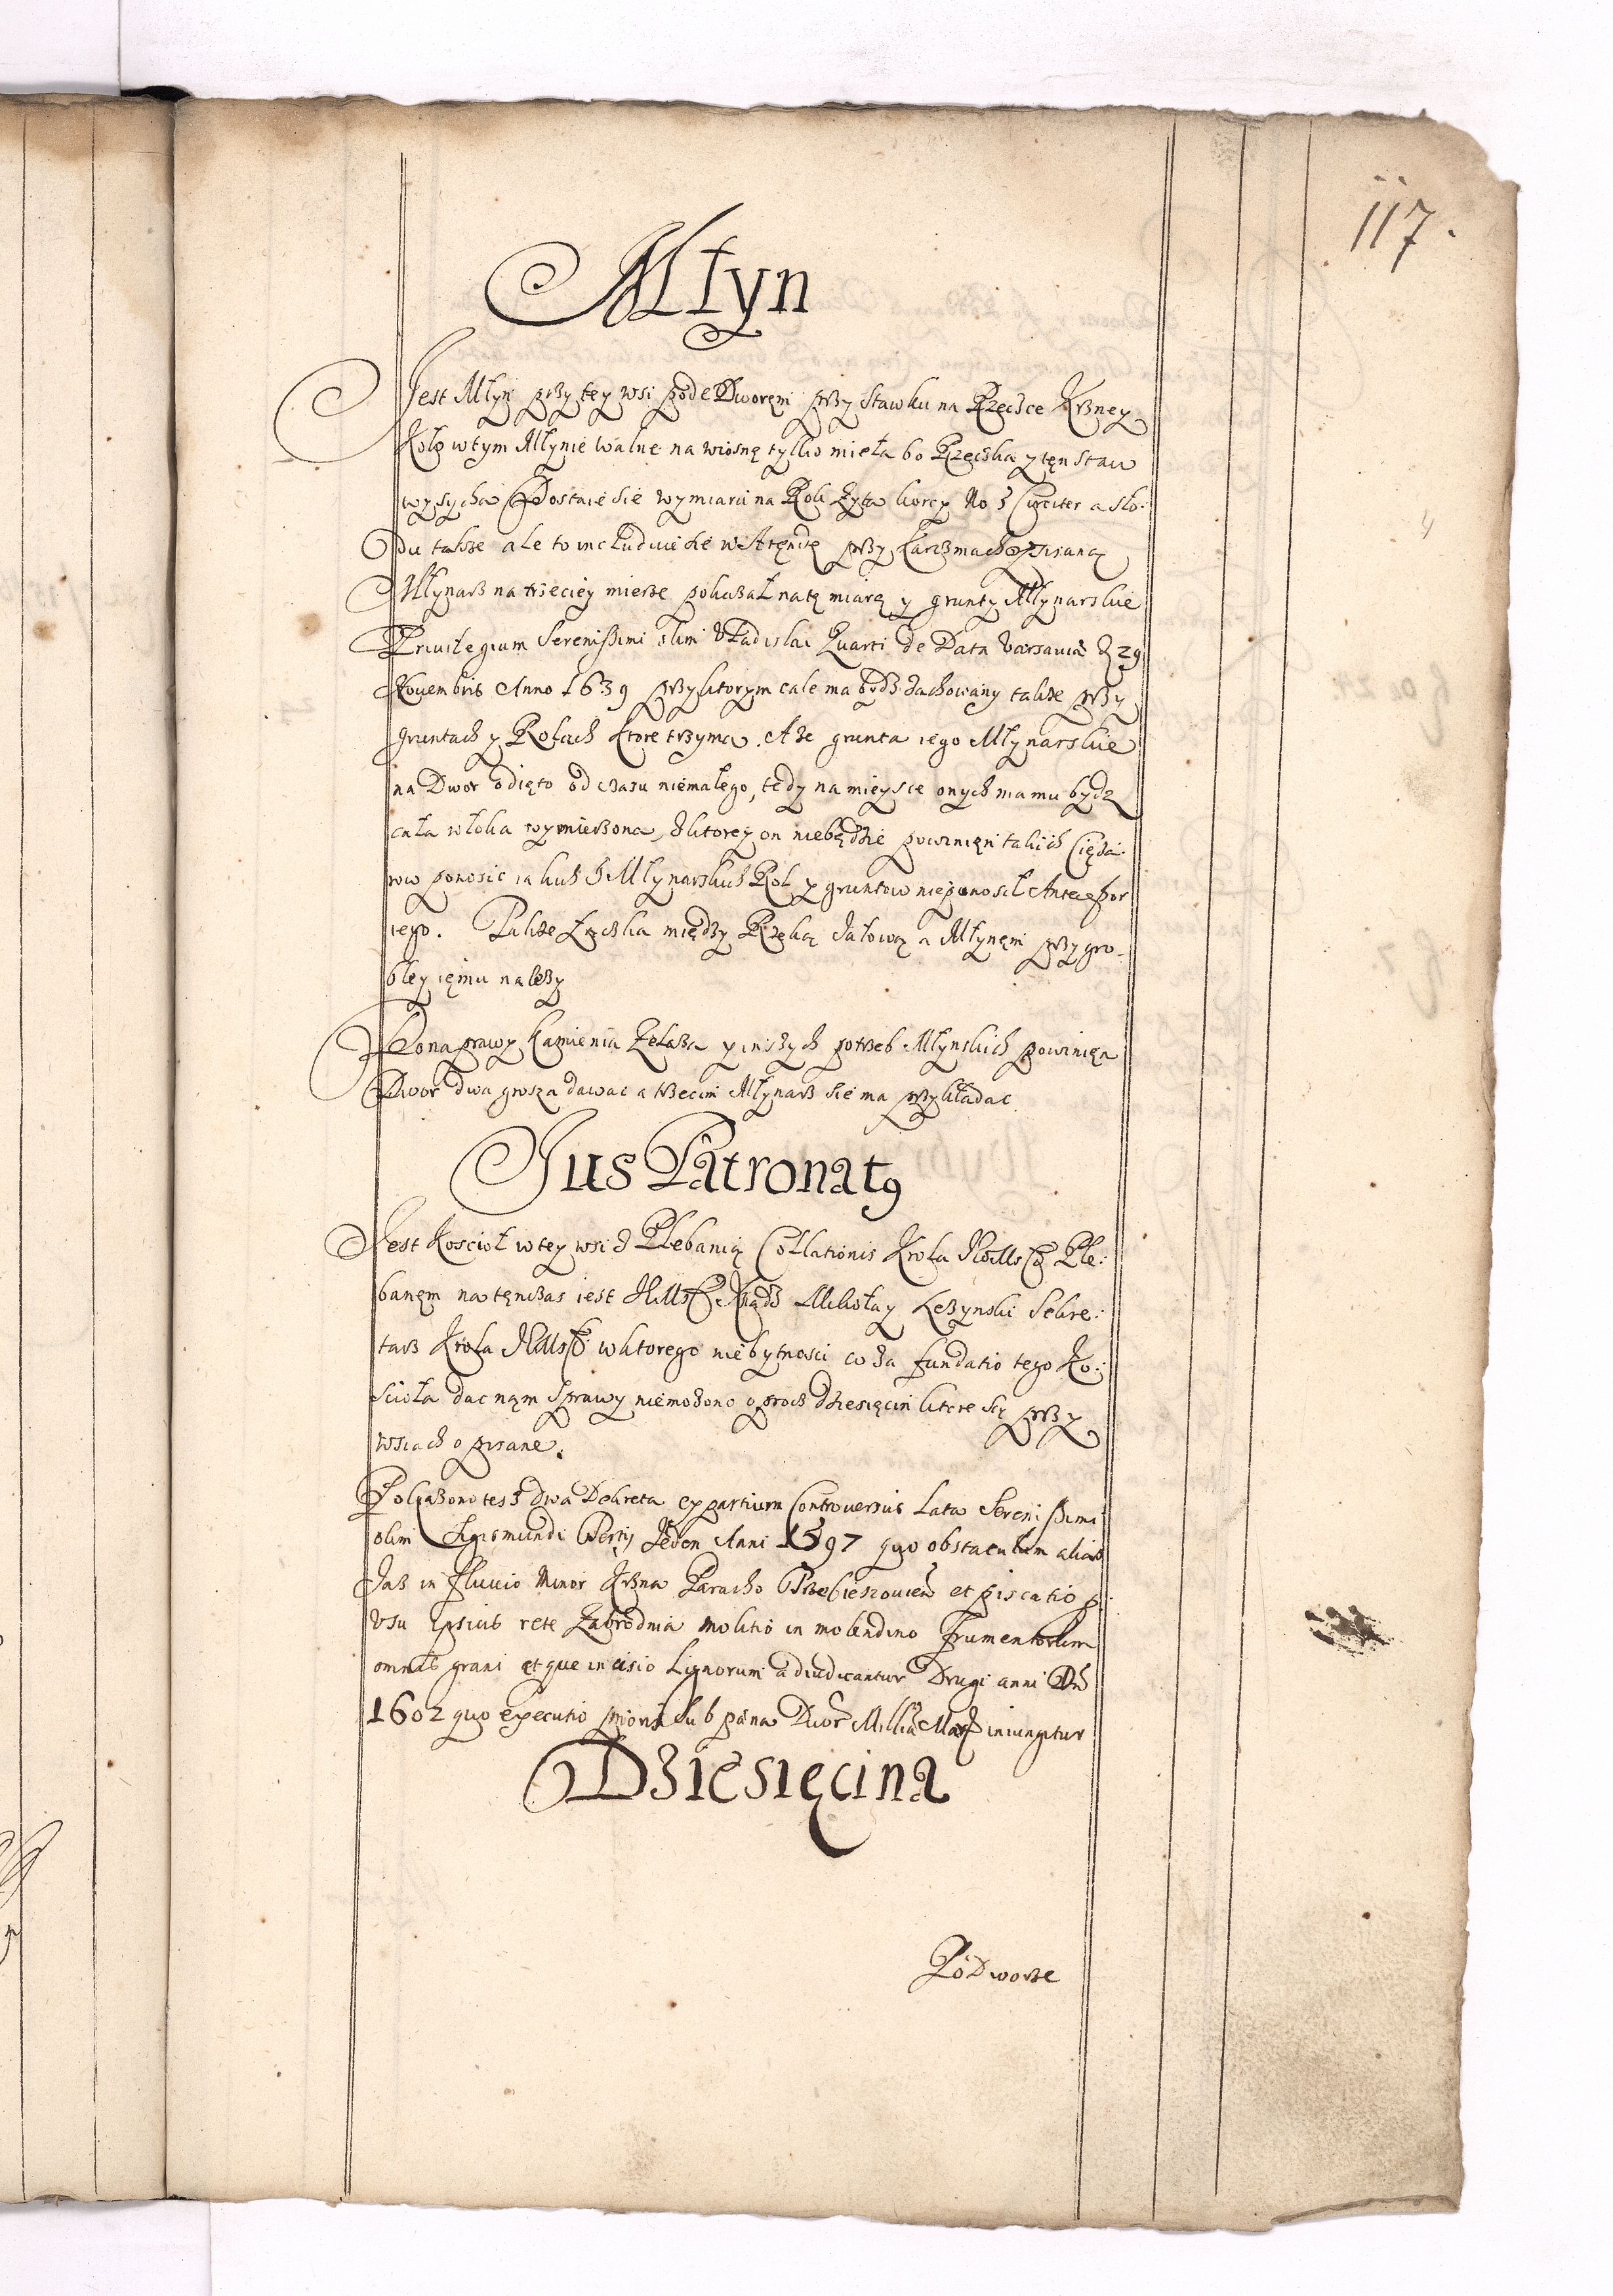 117.
Młyn
Jest Młyn przy tey wsi pode Dworęm przy Stawku na Rzeczce Krzney
Koło w tym Młynie walne na wiosnę tylko miela bo Rzeczka y tęn Staw
wysycha Dostaie sie wymiaru na Rok Żyta korcy No 3 Circiter a Sło:
du także ale to includuie sie w Aręndę przy karczmach opisaną
Młynarz na trzeciey mierze pokazał na tę miarę y grunty Młynarskie
Priuilegium Serenissimi olim Vladislai Quarti de Data Varsauiæ 29
Nouembris Anno 1639 przy ktorym cale ma bydź zachowany także przy
gruntach y Rolach ktore trzyma. A że grunta iego Młynarskie
na Dwor odięto od czasu niemałego, tedy na mieysce onych ma mu bydz
cała włoka wymierzona, z ktorey on niebędzie powinięn takich Cięża:
row ponosic iakich z Młynarskich Rol y gruntow nieponosił Antecessor
iego. Także Łączka między Rzęką Jałową a Młynęm przy gro-
bley ięmu należy
Do naprawy kamienia Żelaza y inszych potrzeb Młynskich powinięn
Dwor dwa grosza dawac a trzecim Młynarz sie ma przykładac
Jus Patronatꝯ
Jest Koscioł w tey wsi z Plebanią Collationis Krola JeoMsci Ple:
banęm na tęnczas iest JeMsc Xiądz Mikołay Leżynski Sekre:
tarz Krola JeMsci w ktorego niebytnosci co za fundatio tego Ko:
scioła dac nąm Sprawy niemożono oprocz dziesięcin ktore są przy
wsiach opisane.
Pokazono tesz dwa Dekreta ex partium Controuersiis Lata Serenissimi
olim Sigismundi Tertij Jeden Anni 1597 quo obstaculum alias
Jaz in fluuio Minor Krzna Paracho et piscatio p
vsu Ipsius rete Zabrodnia molitio in molendino frumentorum
omnis grani et que incisio Lignorum adiudicantur Drugi anni Dni
1602 quo executio prioris sub pæna Duor Millia Marc iniungitur
Dziesięcina
Po Dworze